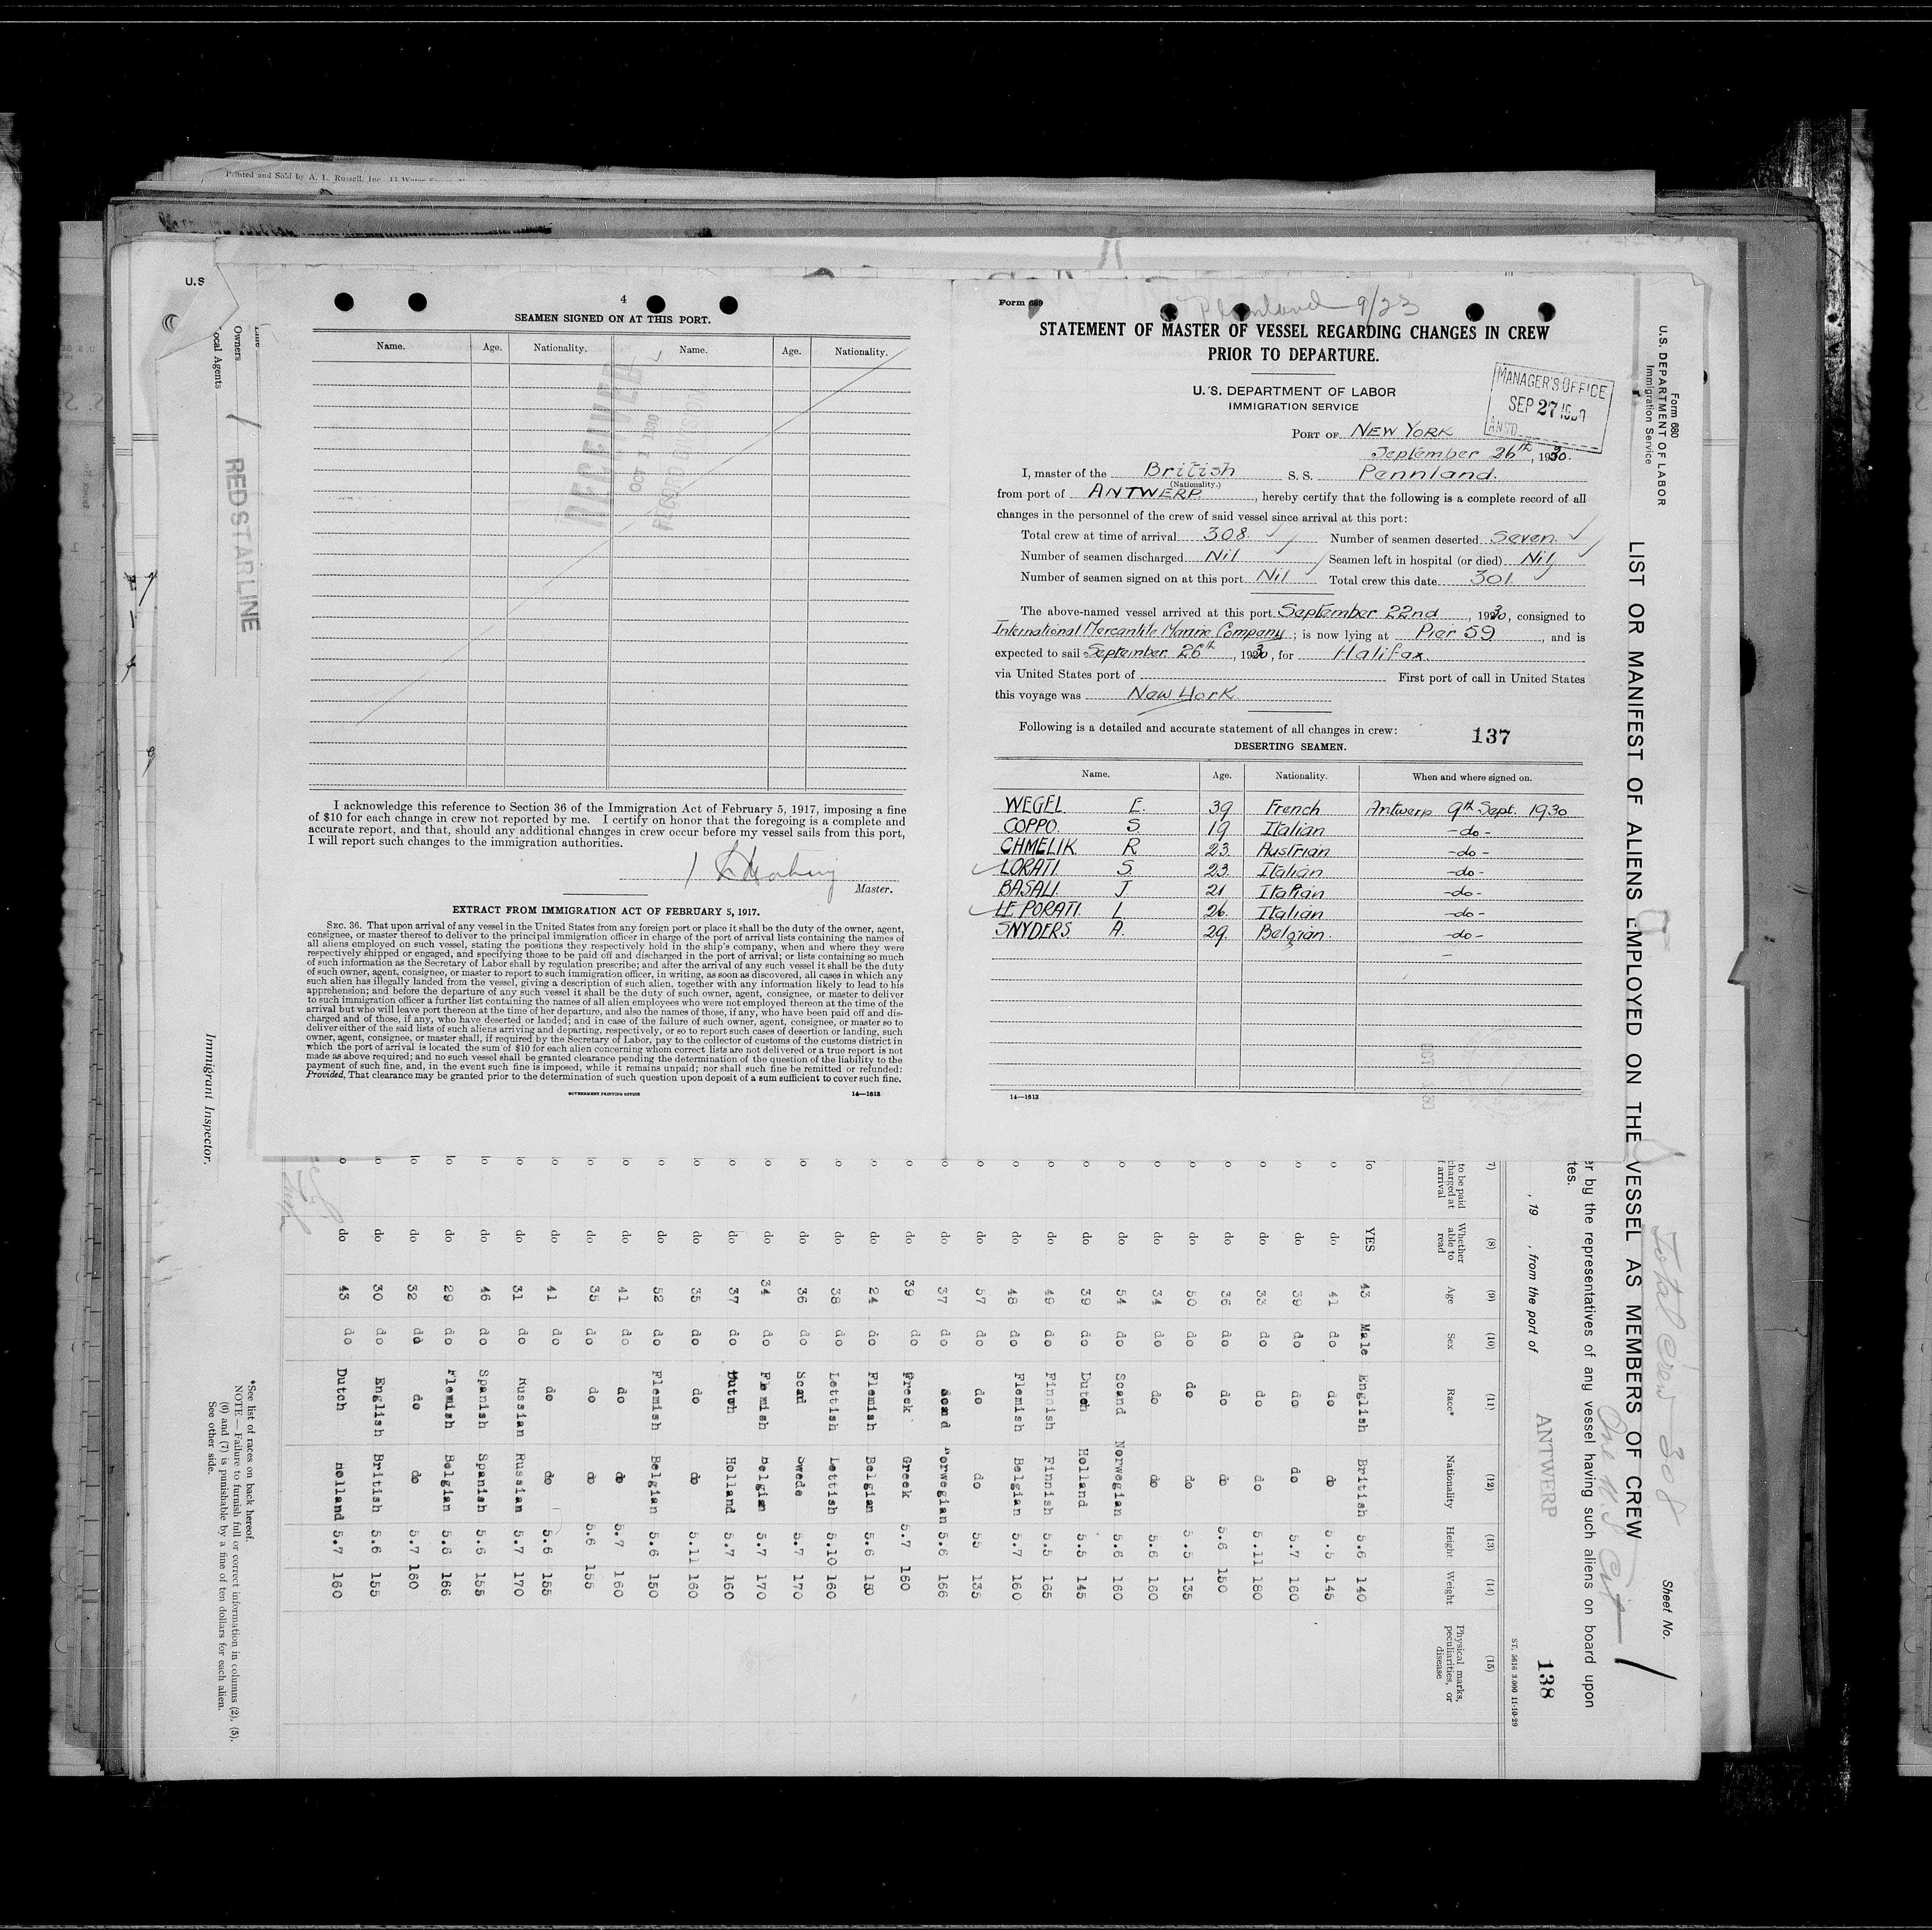 Printed and Sold by A. L. Russell, Inc.
U.S
Owners
Local Agents
RED STAR LINE
Immigrant Inspector.
4
SEAMEN SIGNED ON AT THIS PORT.
Name. Age. Nationality. Name. Age. Nationality.
RECEIVED
OCT 1 1930
RECORD DIVISION
I acknowledge this reference to Section 36 of the Immigration Act of February 5, 1917, imposing a fine
of $10 for each change in crew not reported by me. I certify on honor that the foregoing is a complete and
accurate report, and that, should any additional changes in crew occur before my vessel sails from this port,
I will report such changes to the immigration authorities.
Master.
EXTRACT FROM IMMIGRATION ACT OF FEBRUARY 5, 1917.
SEC. 36. That upon arrival of any vessel in the United States from any foreign port or place it shall be the duty of the owner, agent,
consignee, or master thereof to deliver to the principal immigration officer in charge of the port of arrival lists containing the names of
all aliens employed on such vessel, stating the positions they respectively hold in the ship's company, when and where they were
respectively shipped or engaged, and specifying those to be paid off and discharged in the port of arrival; or lists containing so much
of such information as the Secretary of Labor shall by regulation prescribe; and after the arrival of any such vessel it shall be the duty
of such owner, agent, consignee, or master to report to such immigration officer, in writing, as soon as discovered, all cases in which any
such alien has illegally landed from the vessel, giving a description of such alien, together with any information likely to lead to his
apprehension; and before the departure of any such vessel it shall be the duty of such owner, agent, consignee, or master to deliver
to such immigration officer a further list containing the names of all alien employees who were not employed thereon at the time of the
arrival but who will leave port thereon at the time of her departure, and also the names of those, if any, who have been paid off and dis-
charged and of those, if any, who have deserted or landed; and in case of the failure of such owner, agent, consignee, or master so to
deliver either of the said lists of such aliens arriving and departing, respectively, or so to report such cases of desertion or landing, such
owner, agent, consignee, or master shall, if required by the Secretary of Labor, pay to the collector of customs of the customs district in
which the port of arrival is located the sum of $10 for each alien concerning whom correct lists are not delivered or a true report is not
made as above required; and no such vessel shall be granted clearance pending the determination of the question of the liability to the
payment of such fine, and, in the event such fine is imposed, while it remains unpaid; nor shall such fine be remitted or refunded:
Provided, That clearance may be granted prior to the determination of such question upon deposit of a sum sufficient to cover such fine.
GOVERNMENT PRINTING OFFICE 14—1613
Form 689
Pennland 9/23
STATEMENT OF MASTER OF VESSEL REGARDING CHANGES IN CREW
PRIOR TO DEPARTURE.
U. S. DEPARTMENT OF LABOR
IMMIGRATION SERVICE
MANAGER'S OFFICE
SEP 27 1930
ANS'D
PORT OF NEW YORK
September 26th, 1930.
I, master of the British S. S. Pennland.
(Nationality.)
from port of ANTWERP, hereby certify that the following is a complete record of all
changes in the personnel of the crew of said vessel since arrival at this port:
Total crew at time of arrival 308. Number of seamen deserted Seven.
Number of seamen discharged Nil Seamen left in hospital (or died) Nil
Number of seamen signed on at this port Nil Total crew this date 301.
The above-named vessel arrived at this port September 22nd, 1930, consigned to
International Mercantile Marine Company; is now lying at Pier 59, and is
expected to sail September 26th, 1930, for Halifax.
via United States port of First port of call in United States
this voyage was New York
Following is a detailed and accurate statement of all changes in crew:
137
DESERTING SEAMEN.
Name. Age. Nationality. When and where signed on.
WEGEL E. 39 French Antwerp 9th Sept. 1930
COPPO. S. 19 Italian -do-
CHMELIK R 23. Austrian -do-
LORATI S. 23. Italian -do-
BASALI. J. 21 Italian -do-
LE PORATI. L. 26. Italian -do-
SNYDERS. A. 29. Belgian. -do-
14—1613
Form 680
U.S. DEPARTMENT OF LABOR
Immigration Service
LIST OR MANIFEST OF ALIENS EMPLOYED ON THE VESSEL AS MEMBERS OF CREW
Sheet No. 1
Total crew 308
One U.S Cit
er by the representatives of any vessel having such aliens on board upon
tes.
, 19 , from the port of ANTWERP
138
ST. 5616 3.000 11-10-29
7) (8) (9) (10) (11) (12) (13) (14) (15)
to be paid charged at arrival Whether able to read Age Sex Race* Nationality Height Weight Physical marks, peculiarities, or disease
YES 43 Male English British 5.6 140
do 41 do do do 5.5 145
do 39 do do do 5.7 160
do 33 do do do 5.11 180
do 36 do do do 5.6 150
do 50 do do do 5.5 135
do 34 do do do 5.6 160
do 54 do Scand Norwegian 5.6 160
do 39 do Dutch Holland 5.5 145
do 49 do Finnish Finnish 5.5 165
do 48 do Flemish Belgian 5.7 160
do 57 do do do 55 135
do 37 do Scand Norwegian 5.6 166
do 39 do Greek Greek 5.7 160
do 24 do Flemish Belgian 5.6 150
do 38 do Lettish Lettish 5.10 160
do 36 do Scad Swede 5.7 170
do 34 do Flemish Belgian 5.7 170
do 37 do Dutch Holland 5.7 160
do 35 do do do 5.11 160
do 52 do Flemish Belgian 5.6 150
do 41 do do do 5.7 160
do 35 do do do 5.6 155
do 41 do do do 5.6 155
do 31 do Russian Russian 5.7 170
do 46 do Spanish Spanish 5.6 155
do 29 do Flemish Belgian 5.6 166
do 32 do do do 5.7 160
do 30 do English British 5.6 155
do 43 do Dutch Holland 5.7 160
*See list of races on back hereof.
NOTE.—Failure to furnish full or correct information in columns (2), (5),
(6) and (7) is punishable by a fine of ten dollars for each alien.
See other side.